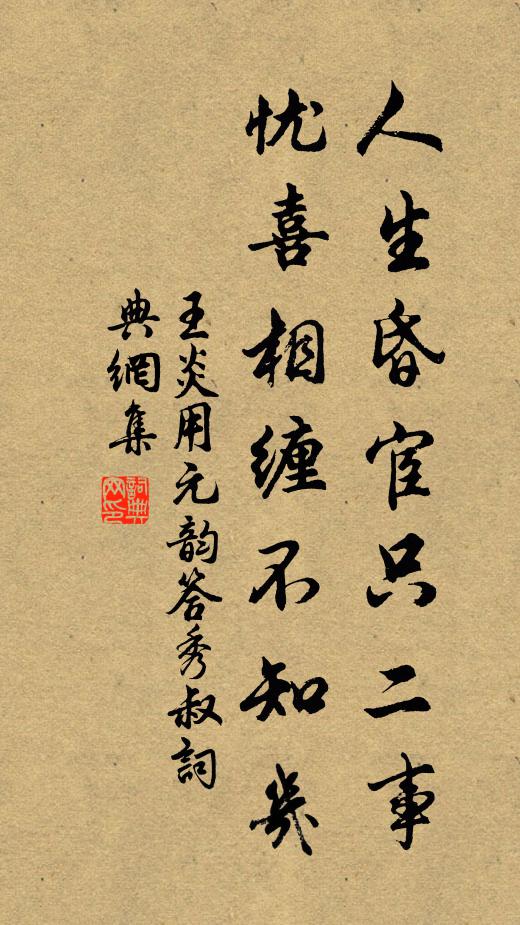 人生昏宦只二事
忧喜相缠不知几
王炎用元韵答秀叔詞
典網集
詞典網印